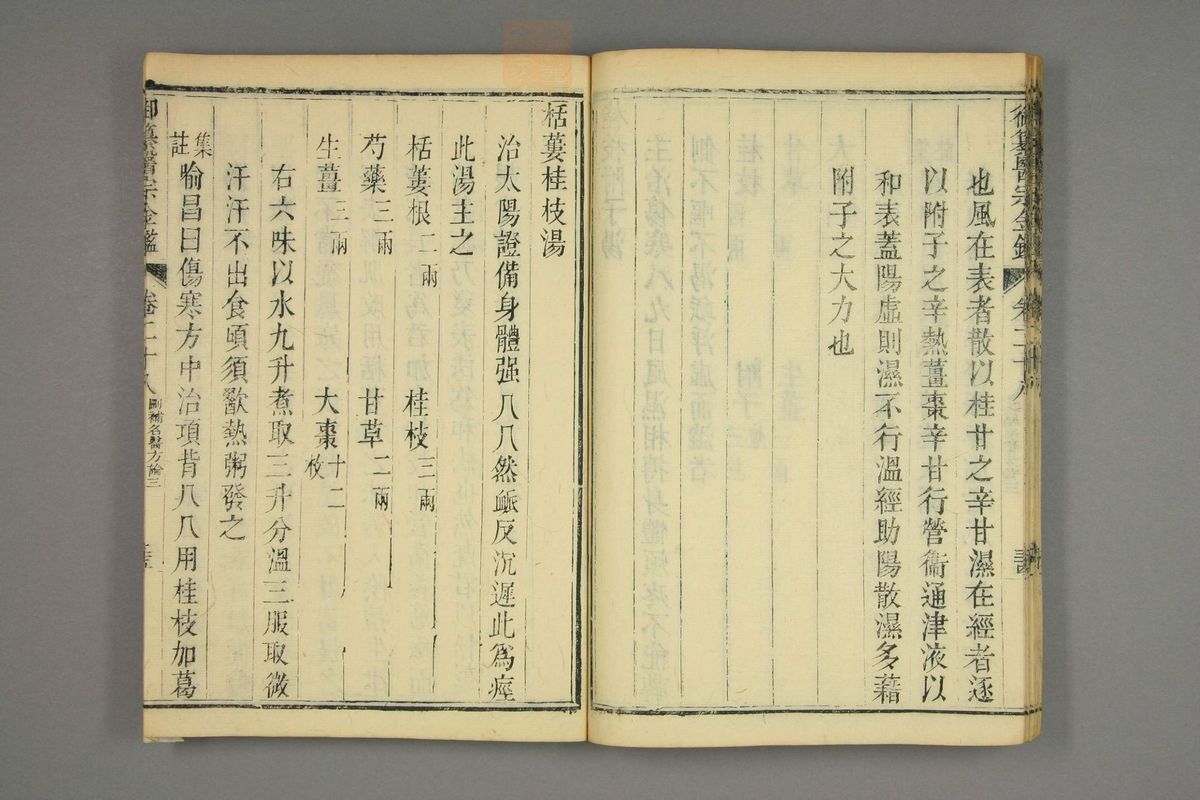 也風在表者散以桂甘之辛甘濕在經者逐
以附子之辛熱薑棗辛甘行營衞通津液以
和表蓋陽虛則濕不行溫經助陽散濕多藉
附子之大力也
栝蔞桂枝湯
治太陽證備身體强八八然脈反沉遲此爲痙
此湯主之
栝蔞根二兩 桂枝三兩
芍藥三兩 甘草二兩
生薑三兩 大棗十二枚
右六味以水九升煮取三升分溫三服取微
汗汗不出食頃須歠熱粥發之
集註 喻昌曰傷寒方中治項背八八用桂枝加葛
御纂醫宗金鑑 卷二十八 刪補名醫方論三